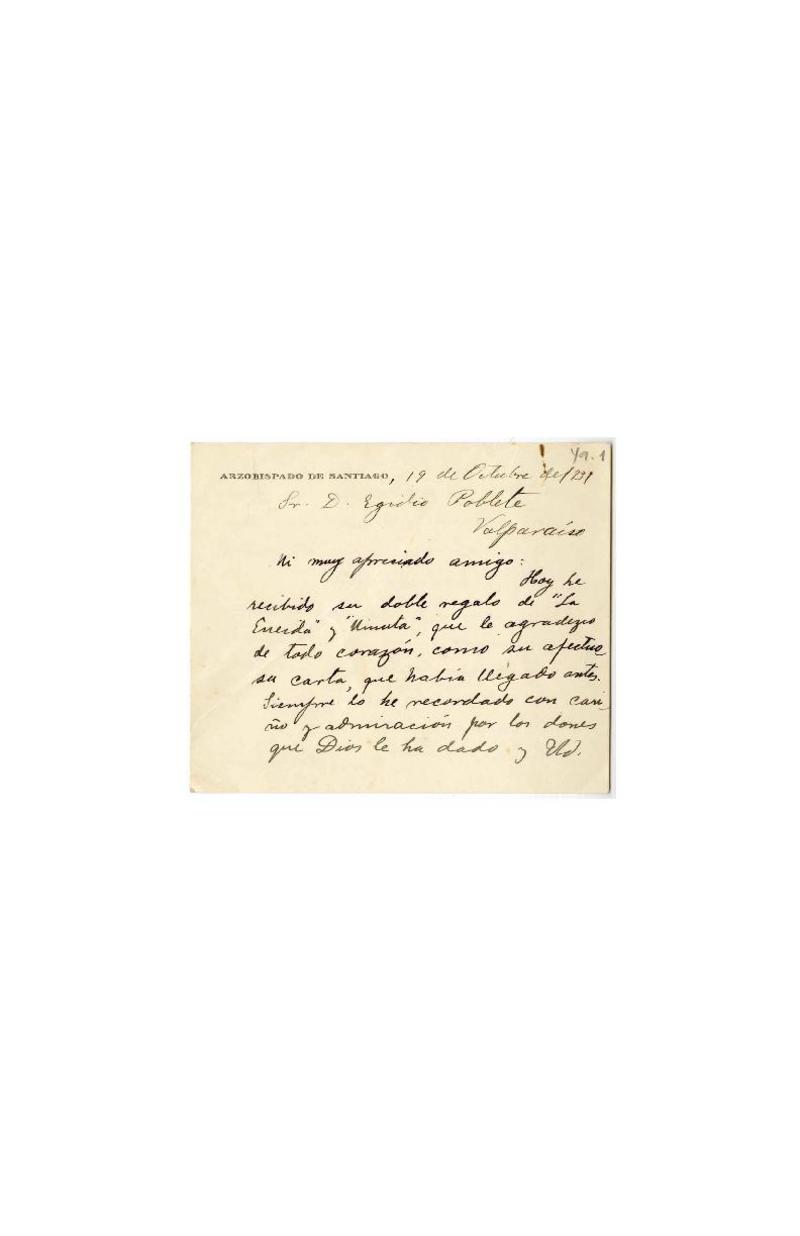 ARZOBISPADO DE SANTIAGO, 19 de Octubre de 1931
Sr. D. Egidio Poblete
Valparaíso
Mi muy apreciado amigo:
Hoy he
recibido su doble regalo de "La
Eneida" y "Minuta", que le agradezco
de todo corazón, como su afectuo
sa carta, que había llegado antes.
Siempre lo he recordado con cari-
ño y admiración por los dones
que Dios le ha dado y Ud.